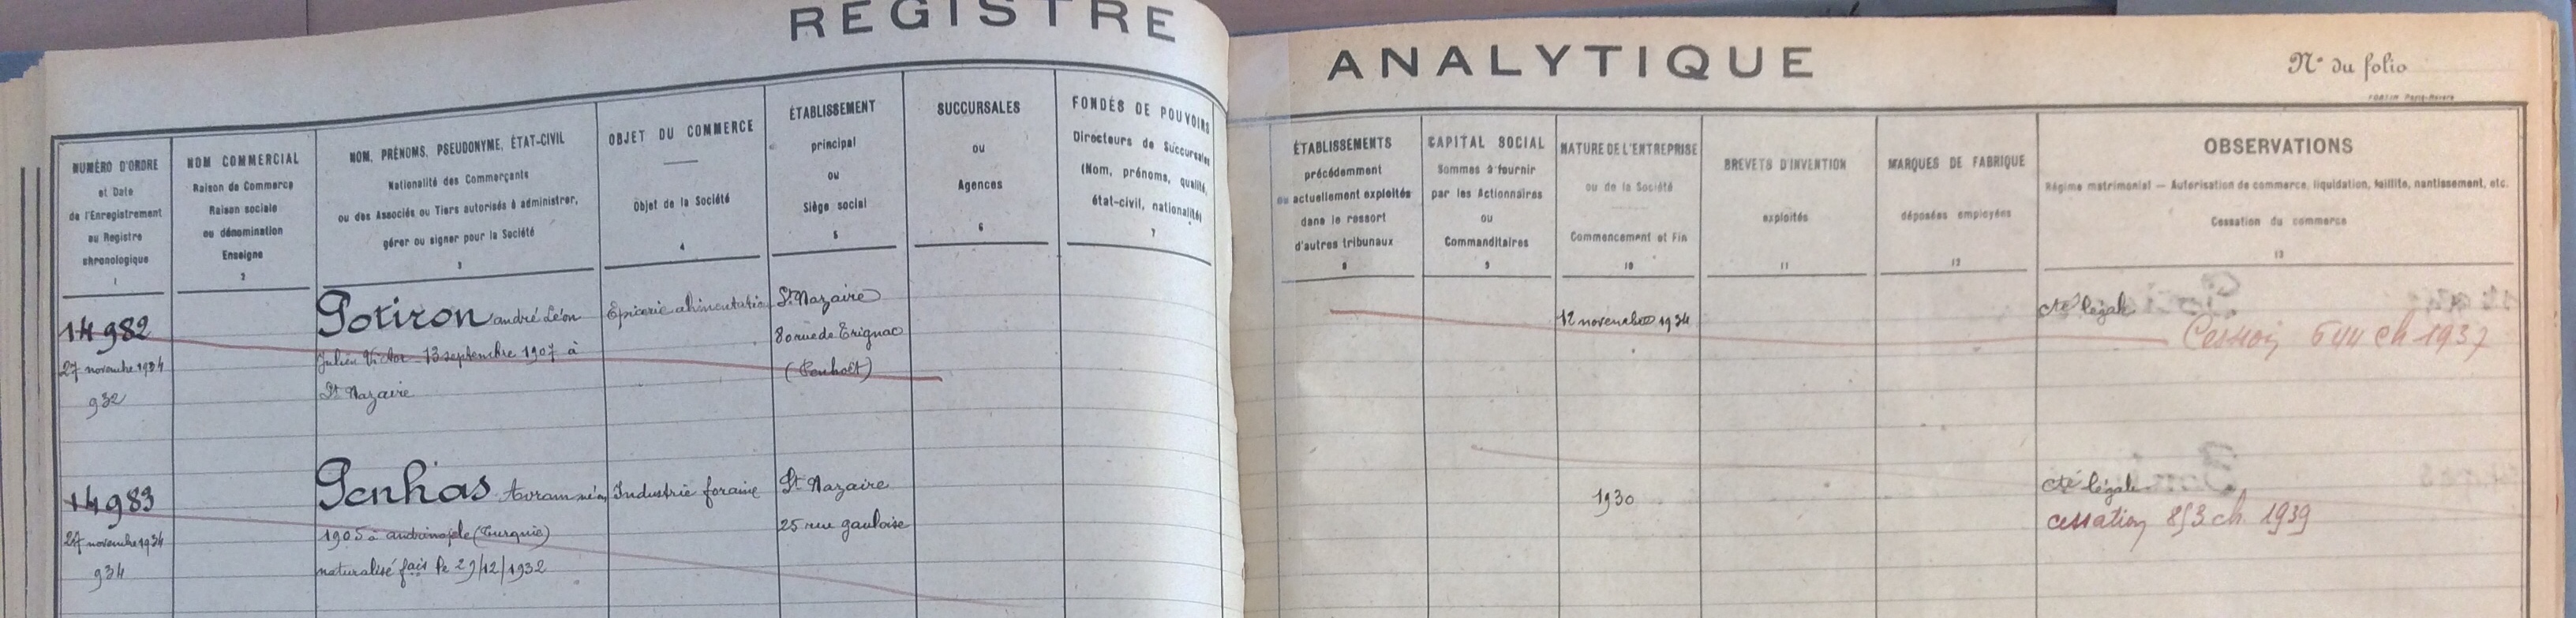 REGISTRE ANALYTIQUE
N° du folio
NUMÉRO D'ORDRE
et Date
de l'Enregistrement
au Registre
chronologique
1
NOM COMMERCIAL
Raison de Commerce
Raison sociale
ou dénomination
Enseigne
2
NOM, PRÉNOMS, PSEUDONYME, ÉTAT-CIVIL
Nationalité des Commerçants
ou des Associés ou Tiers autorisés à administrer,
gérer ou signer pour la Société
3
OBJET DU COMMERCE
Objet de la Société
4
ÉTABLISSEMENT
principal
ou
Siège social
5
SUCCURSALES
ou
Agences
6
FONDÉS DE POUVOIRS
Directeurs de Succursales
(Nom, prénoms, qualité,
état-civil, nationalité)
7
ÉTABLISSEMENTS
précédemment
ou actuellement exploités
dans le ressort
d'autres tribunaux
8
CAPITAL SOCIAL
Sommes à fournir
par les Actionnaires
ou
Commanditaires
9
NATURE DE L'ENTREPRISE
ou de la Société
Commencement et Fin
10
BREVETS D'INVENTION
exploités
11
MARQUES DE FABRIQUE
déposées employées
12
OBSERVATIONS
Régime matrimonial — Autorisation de commerce, liquidation, faillite, nantissement, etc.
Cessation du commerce
13
14982
27 novembre 1934
932
Potiron andré Léon
Julien Victor - 13 septembre 1907 à
St Nazaire
Epicerie alimentation
St Nazaire
80 rue de Trignac
(Penhoët)
12 novembre 1934
cté légale
Cession 644 ch 1937
14983
27 novembre 1934
934
Penhas Avram né en
1905 à andrinople (Turquie)
naturalisé fais le 29/12/1932
Industrie foraine
St Nazaire
25 rue gauloise
1930
cté légale
cessation 853 ch 1939